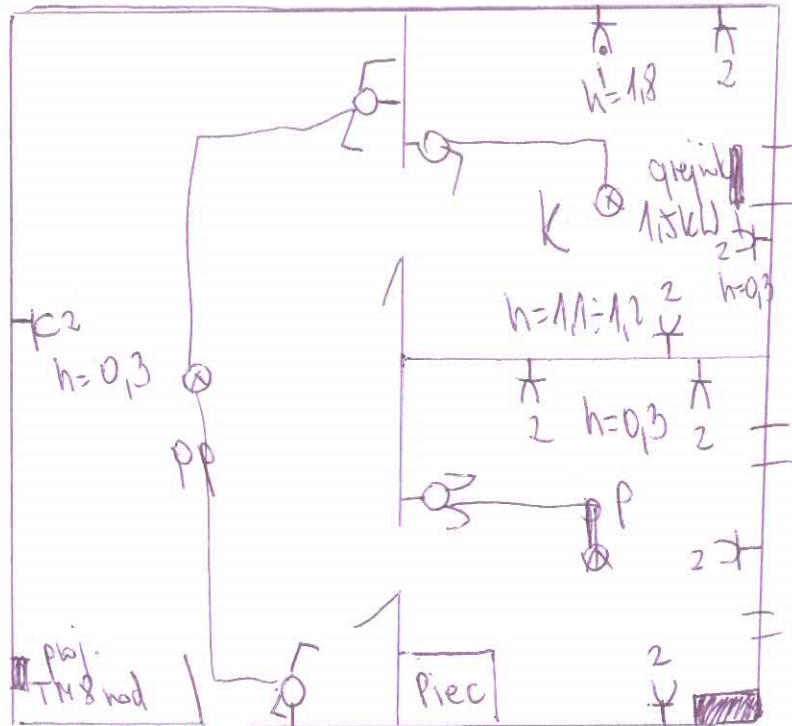 2
h=1,8
grejnik
1,5kW
K
2
h=0,3
2
h=1,1÷1,2
2
h=0,3
2
h=0,3
2
pp
P
2
proj.
TM 8 mod
Piec
2